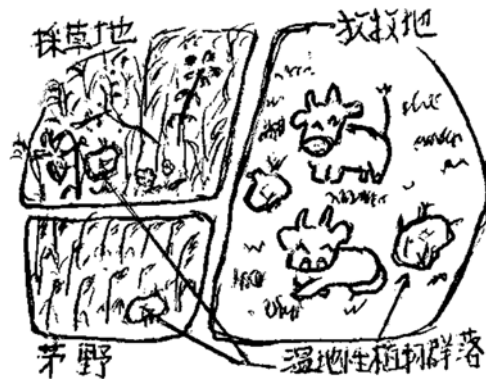 採草地
放牧地
茅野
湿地性植物群落